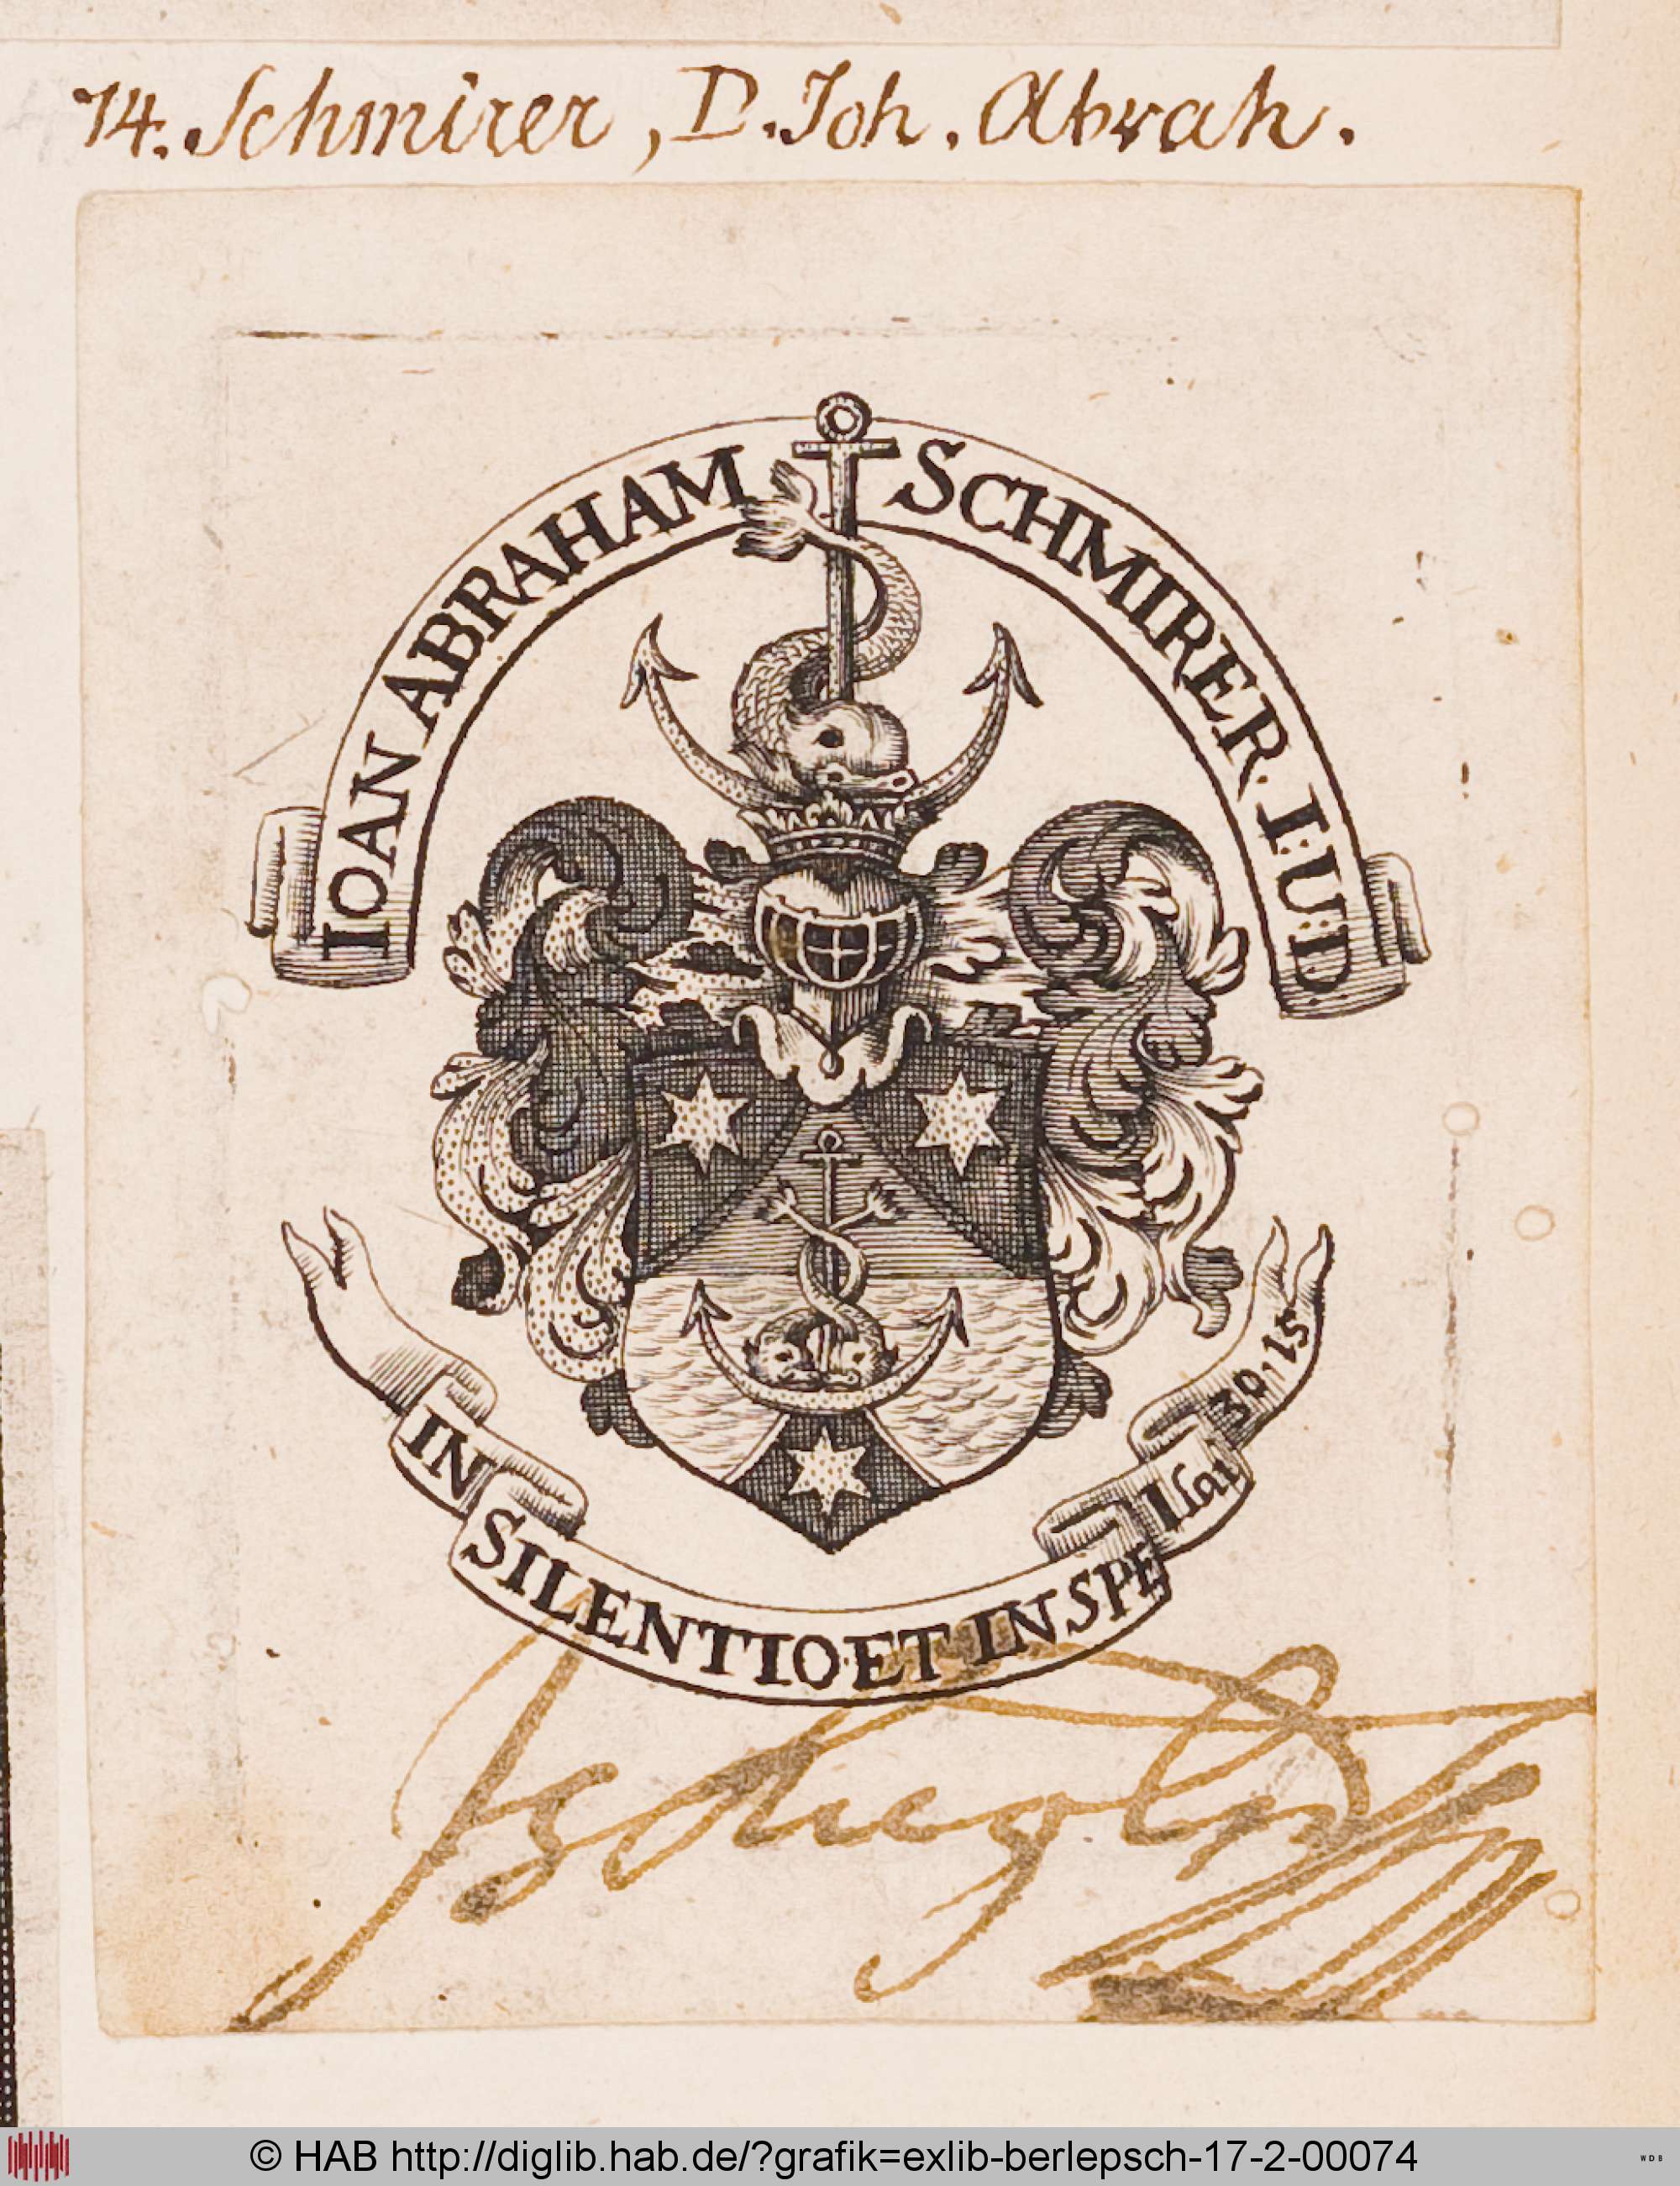 74. Schmirer, D. Joh. Abrah.
IOAN ABRAHAM SCHMIRER. I.U.D
IN SILENTIO ET IN SPE Isai 30, 15
© HAB http://diglib.hab.de/?grafik=exlib-berlepsch-17-2-00074
WDB